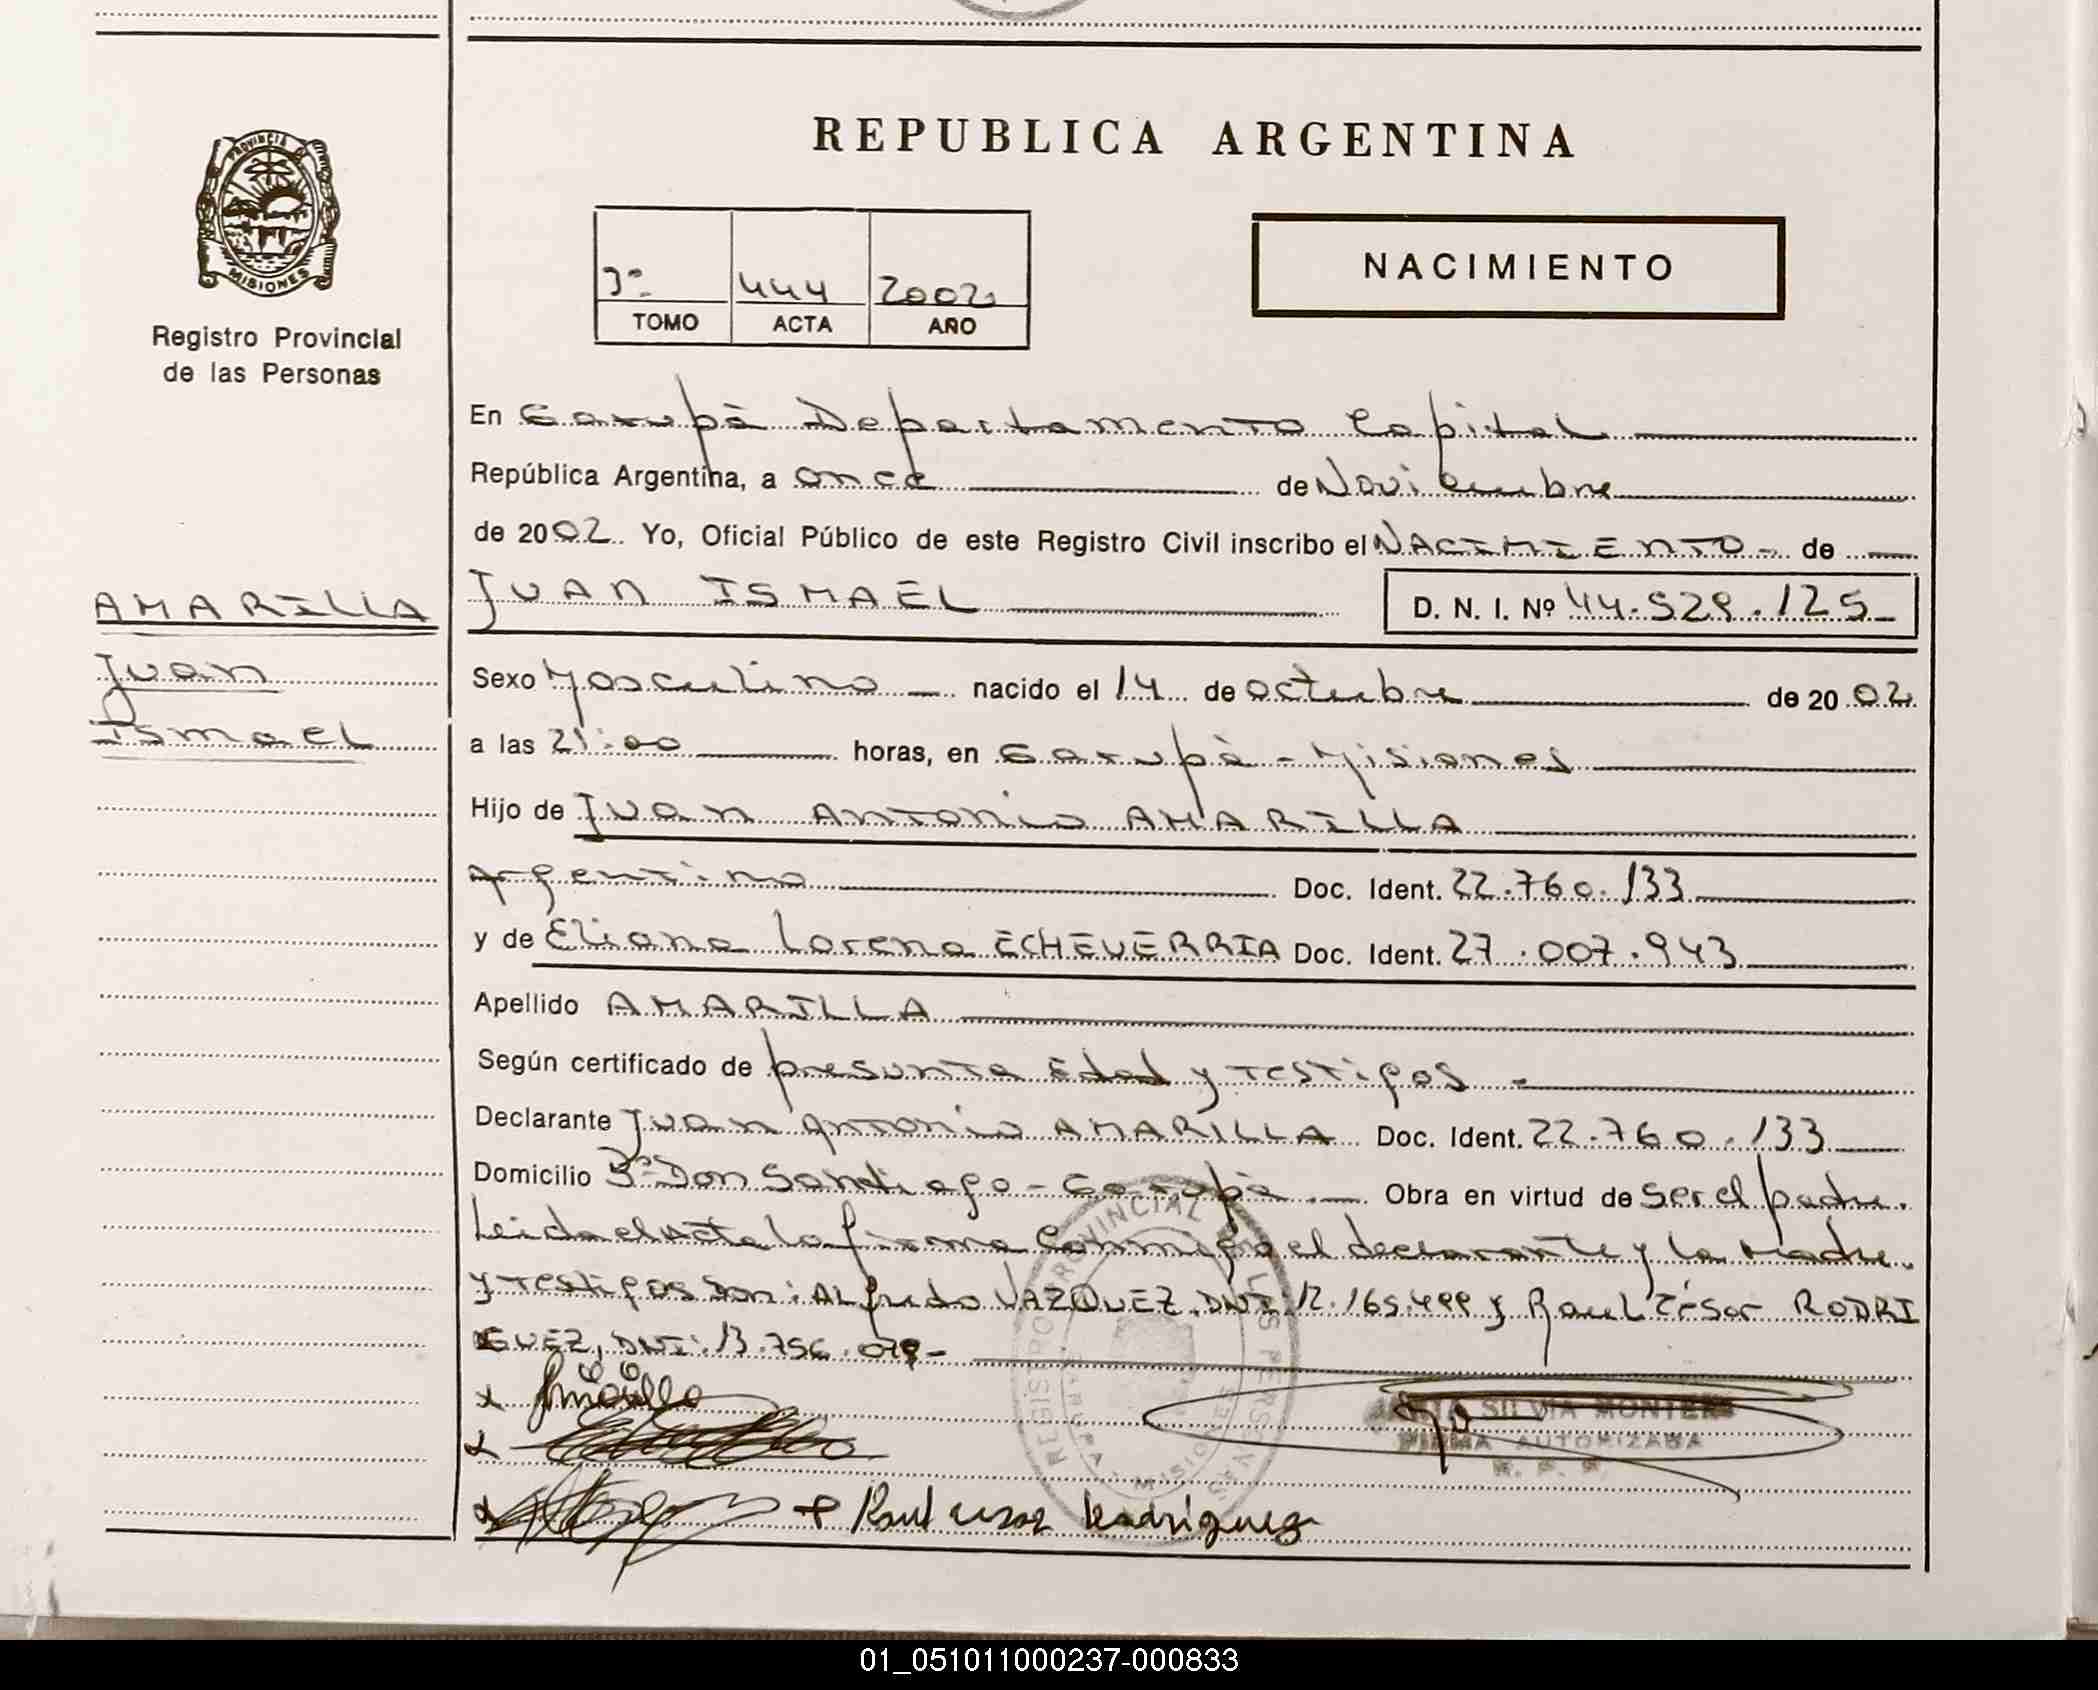 REPUBLICA ARGENTINA
PROVINCIA D
MISIONES
Registro Provincial
de las Personas
3º 444 2002
TOMO ACTA AÑO
NACIMIENTO
En Garupá Departamento Capital
República Argentina, a once de Noviembre
de 2002. Yo, Oficial Público de este Registro Civil inscribo el NACIMIENTO - de
JUAN ISMAEL D. N. I. Nº 44.529.125
AMARILLA
Juan
Ismael
Sexo Masculino nacido el 14 de octubre de 2002
a las 21:00 horas, en Garupá - Misiones
Hijo de Juan Antonio AMARILLA
Argentino Doc. Ident. 22.760.133
y de Eliana Lorena ECHEVERRIA Doc. Ident. 27.007.943
Apellido AMARILLA
Según certificado de presunta Edad y testigos.
Declarante Juan Antonio AMARILLA Doc. Ident. 22.760.133
Domicilio Bº Don Santiago - Garupá. Obra en virtud de ser el padre.
Leida el acta la firma conmigo el declarante y la madre.
y testigos son: ALfredo VAZQUEZ, DNI: 12.165.499 y Raul César RODRI
GUEZ, DNI: 13.756.079-
x Amarilla
x
x + Raul cesar Rodriguez
REGISTRO PROVINCIAL DE LAS PERSONAS
GARUPA - MISIONES
SILVIA MONTIEL
FIRMA AUTORIZADA
R. P. P.
01_051011000237-000833